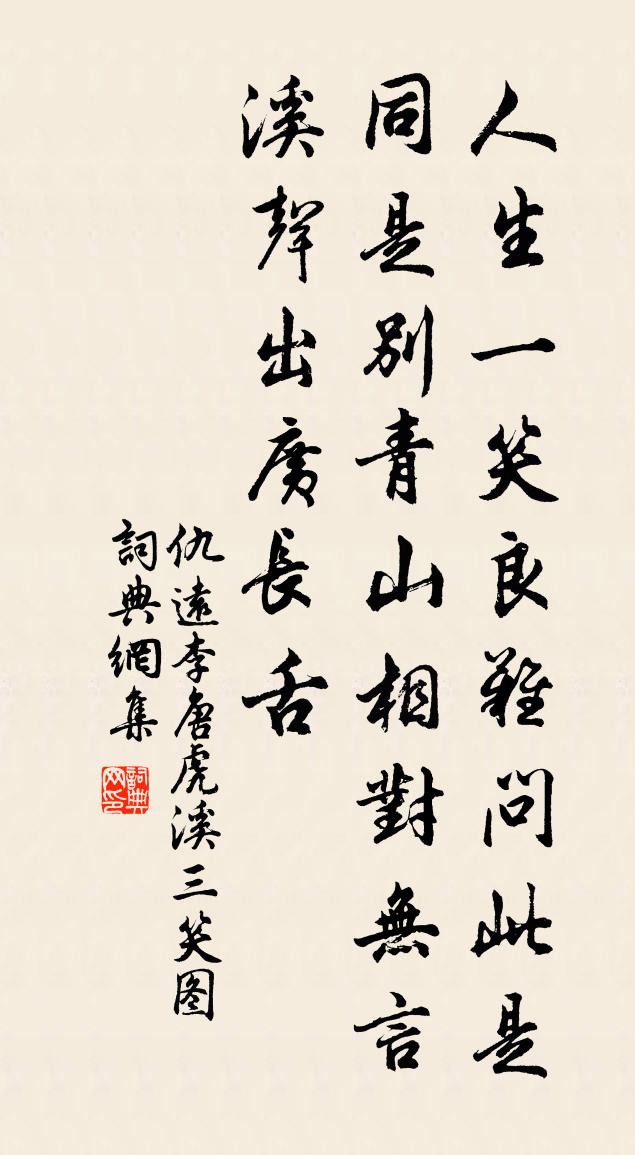 人生一笑良難問此是
同是別青山相對無言
溪聲出廣長舌
仇遠李唐虎溪三笑图
詞典網集
詞典网印